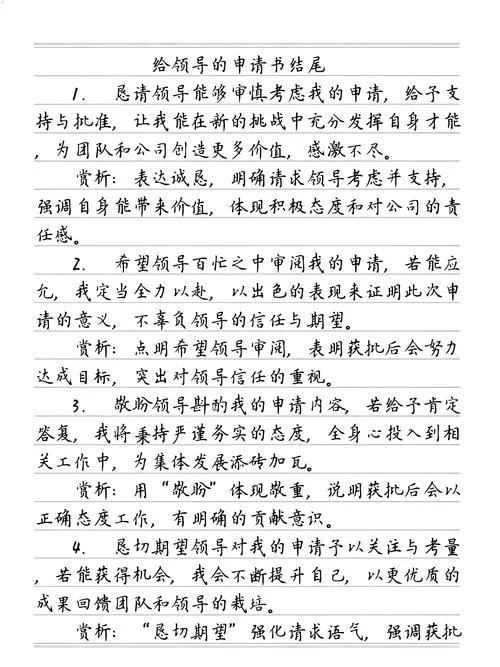 给领导的申请书结尾
1. 恳请领导能够审慎考虑我的申请, 给予支
持与批准, 让我能在新的挑战中充分发挥自身才能
, 为团队和公司创造更多价值, 感激不尽。
赏析: 表达诚恳, 明确请求领导考虑并支持,
强调自身能带来价值, 体现积极态度和对公司的责
任感。
2. 希望领导百忙之中审阅我的申请, 若能应
允, 我定当全力以赴, 以出色的表现来证明此次申
请的意义, 不辜负领导的信任与期望。
赏析: 点明希望领导审阅, 表明获批后会努力
达成目标, 突出对领导信任的重视。
3. 敬盼领导斟酌我的申请内容, 若给予肯定
答复, 我将秉持严谨务实的态度, 全身心投入到相
关工作中, 为集体发展添砖加瓦。
赏析: 用“敬盼”体现敬重, 说明获批后会以
正确态度工作, 有明确的贡献意识。
4. 恳切期望领导对我的申请予以关注与考量
, 若能获得机会, 我会不断提升自己, 以更优质的
成果回馈团队和领导的栽培。
赏析: “恳切期望”强化请求语气, 强调获批